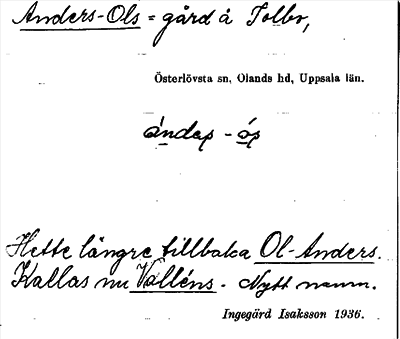 Anders-Ols = gård å Tolbo,
Österlövsta sn, Olands hd, Uppsala län.
Hette längre tillbaka Ol-Anders.
Kallas nu Valléns. - Nytt namn.
Ingegärd Isaksson 1936.